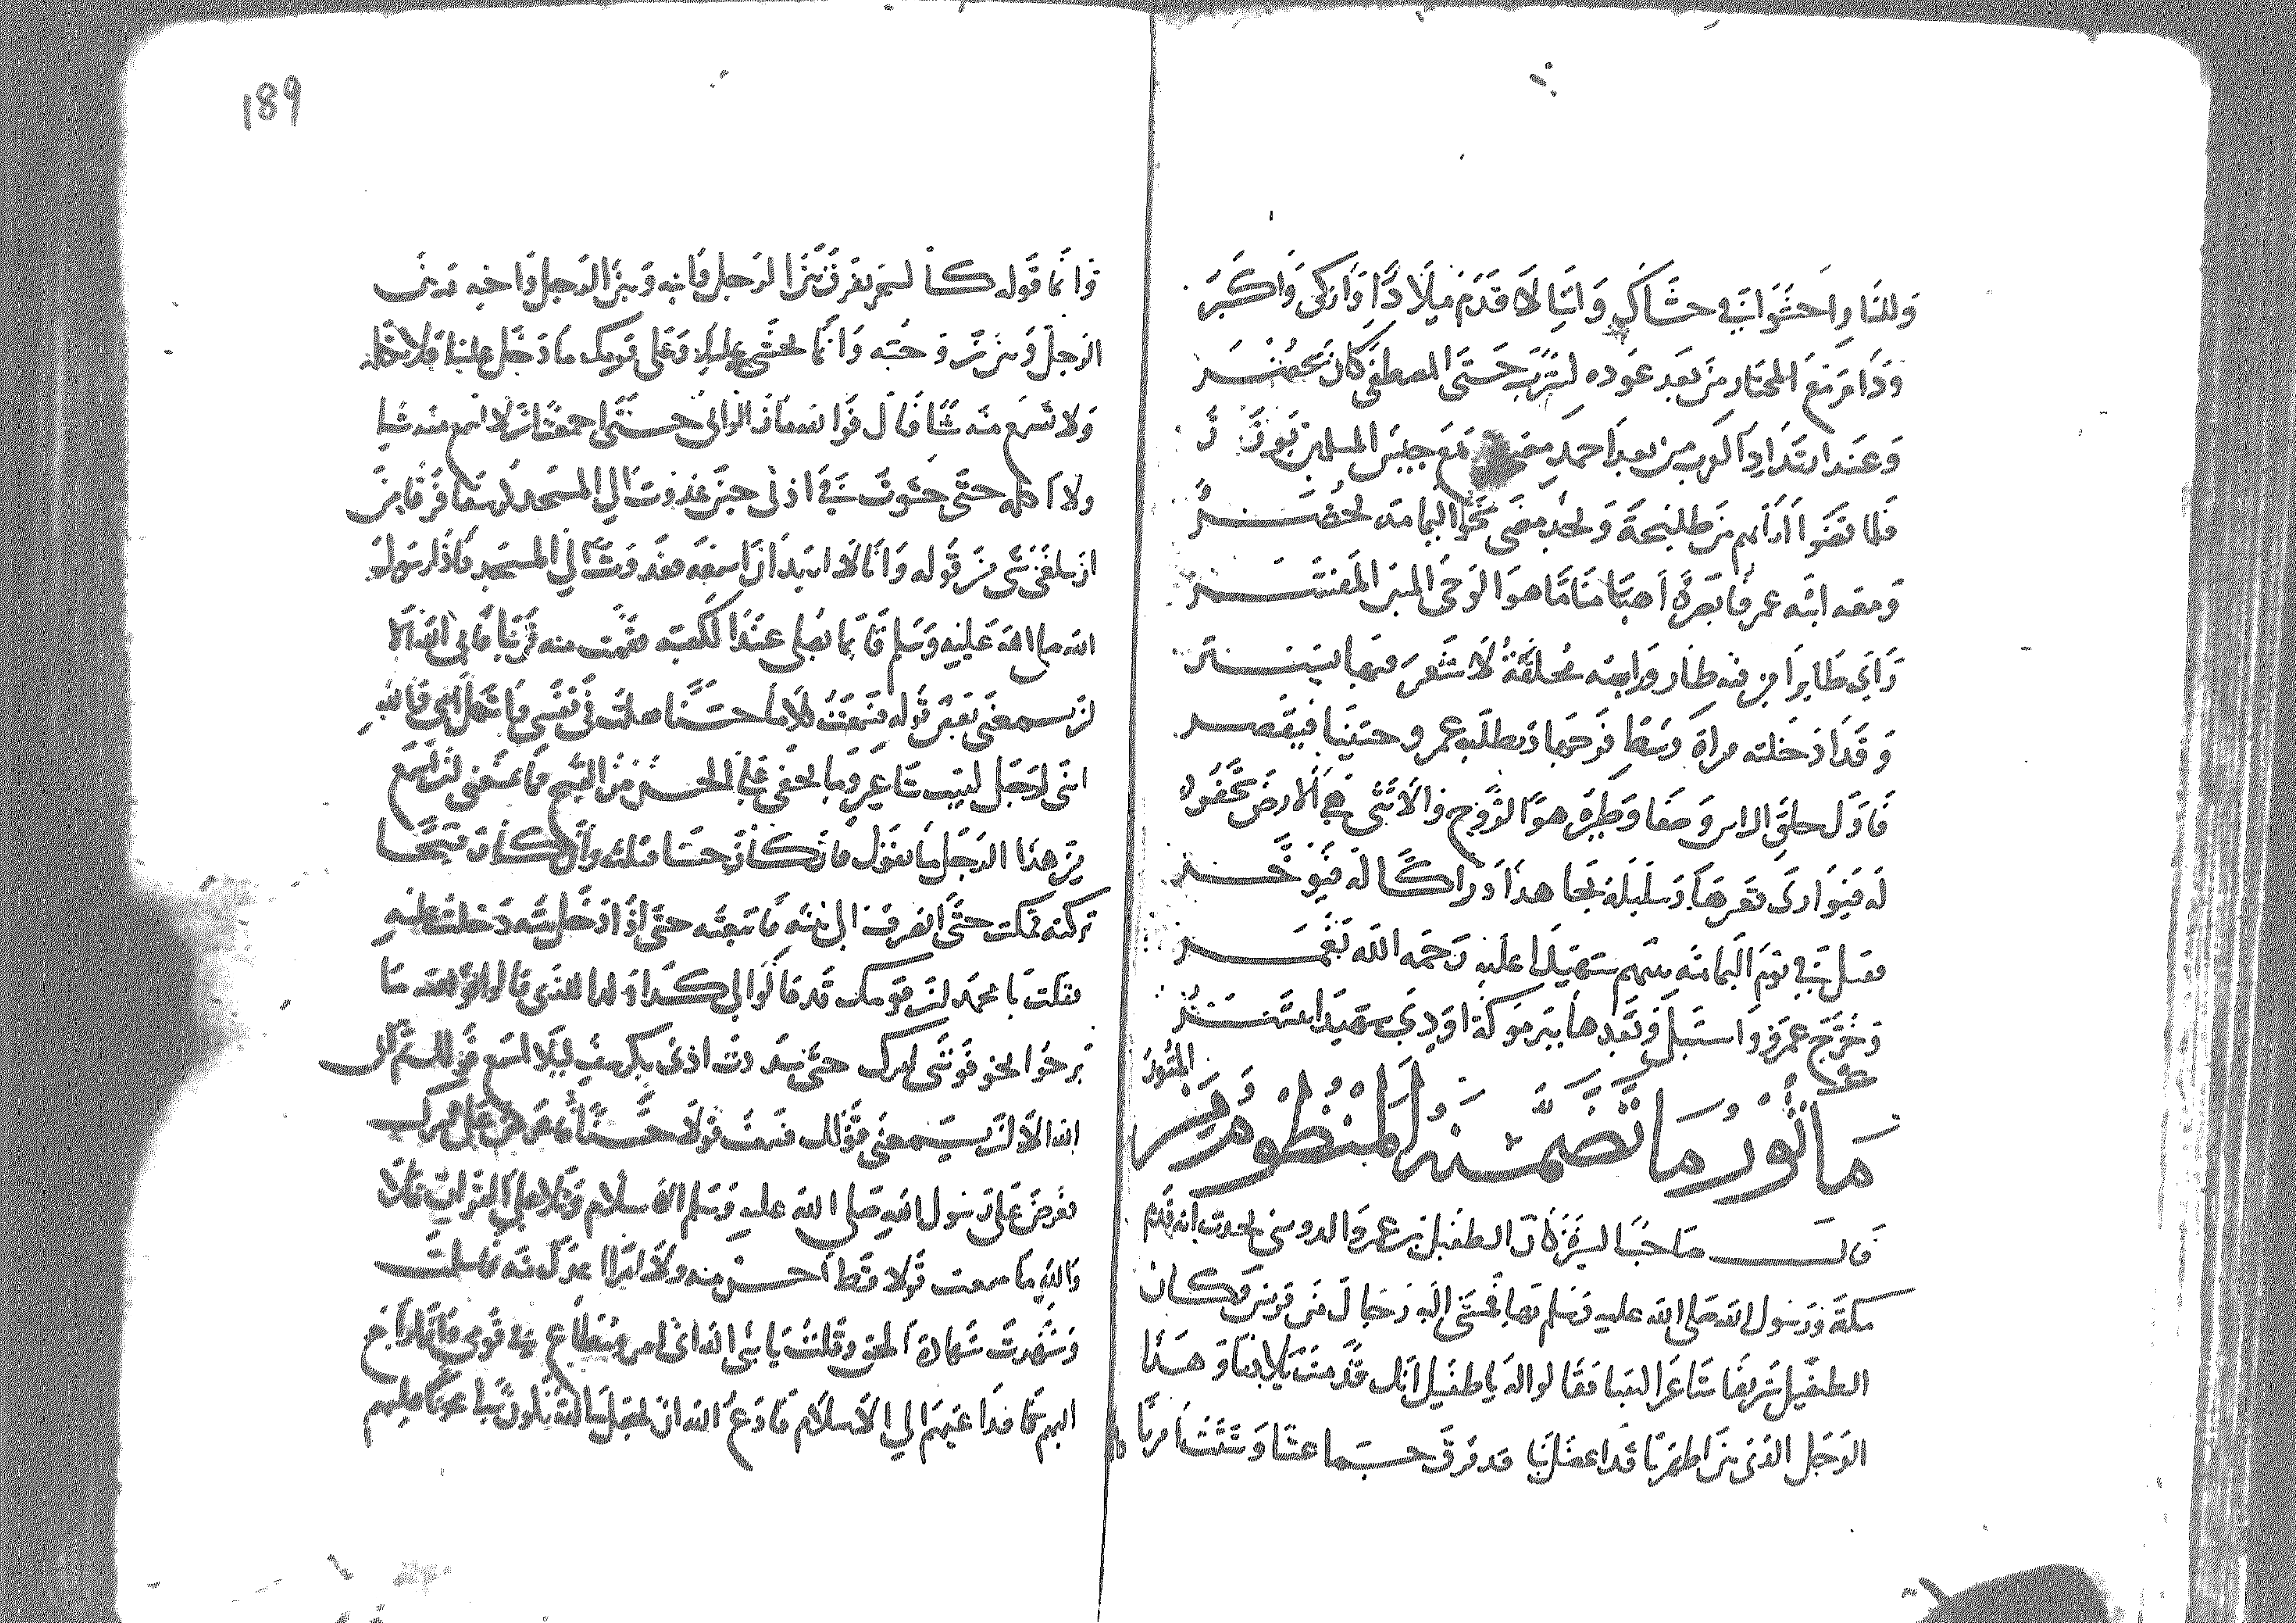 وللنار احشواني حشاك واننى لاقدم ميلادا وازكى واكبر
ودام مع المختار من بعد عوده ليثرب حتى المصطفى كان يحضر
وعند ارتداد العرب من بعد احمد مع جيش المسلمين
فلما قضوا اربهم من طليحة ونجد مضى نحو اليمامة يحضر
ومعه ابنه عمر فابصره اصبا مناما هوا لوحى المبين المفسر
راى طايرا من فيه طار وراسه محلقة لا شعر فيها يستر
وقد ادخلته مراة وسط فرجها ويطلبه عمرو حثيثا فيقصر
فاول حلق الراس وضعا وطيره هو الروح والانثى هي الارض تحفر
له فيوارى قعرها وسليله يجاهد ادراكا له فيوخر
فقتل في يوم اليمامة منهم شهيدا عليه رحمه الله تغمر
وخرج عمرو واستبل وبعدها بيرموكة اودى شهيدا
ماثور ما تضمنه المنظوم من المنثور
قال صاحب السيرة كان الطفيل بن عمرو الدوسي يحدث انه قدم
مكة ورسول الله صلى الله عليه وسلم بها فمشى اليه رجال من قريش وكان
الطفيل شريفا شاعرا لبيبا فقالوا له يا طفيل انك قدمت بلادنا وهذا
الرجل الذي بين اظهرنا قد اعضل بنا قد فرق جماعتنا وشتت امرنا
وانما قوله كالسحر يفرق بين الرجل وابيه وبين الرجل واخيه وبين
الرجل وبين زوجته وانا نخشى عليك وعلى قومك ما دخل علينا فلا تكلمه
ولا تسمع منه شيا قال فوالله ما زالوا بي حتى اجمعت ان لا اسمع منه شيا
ولا اكلمه حتى حشوت في اذني حين غدوت الى المسجد كرسفا فرقا من
ان يبلغني شي من قوله وانا لا اريد ان اسمعه فغدوت الى المسجد فاذا رسول
الله صلى الله عليه وسلم قايما يصلى عند الكعبه فقمت منه قريبا فابى الله الا
ان يسمعني بعض قوله فسمعت كلاما حسنا فقلت في نفسي واثكل امي والله
انني لرجل لبيب شاعر وما يخفى علي الحسن من القبيح فما يمنعني ان اسمع
من هذا الرجل ما يقول فان كان حسنا قبلته وان كان قبيحا
تركته فمكثت حتى انصرف الى بيته فاتبعته حتى اذا دخل بيته دخلت عليه
فقلت يا محمد ان قومك قد قالوا لي كذا وكذا للذي قالوا فوالله ما
برحوا يخوفونني امرك حتى سددت اذني بكرسف ليلا اسمع قولك ثم ابى
الله الا ان يسمعني قولك فسمعت قولا حسنا فاعرض علي امرك
فعرض علي رسول الله صلى الله عليه وسلم الاسلام وتلا علي القران فلا
والله ما سمعت قولا قط احسن منه ولا امرا اعدل منه فاسلمت
وشهدت شهادة الحق وقلت يا نبي الله اني امرؤ مطاع في قومي وانا راجع
اليهم فداعيهم الي الاسلام فادع الله ان يجعل لي اية تكون لي عونا عليهم
189